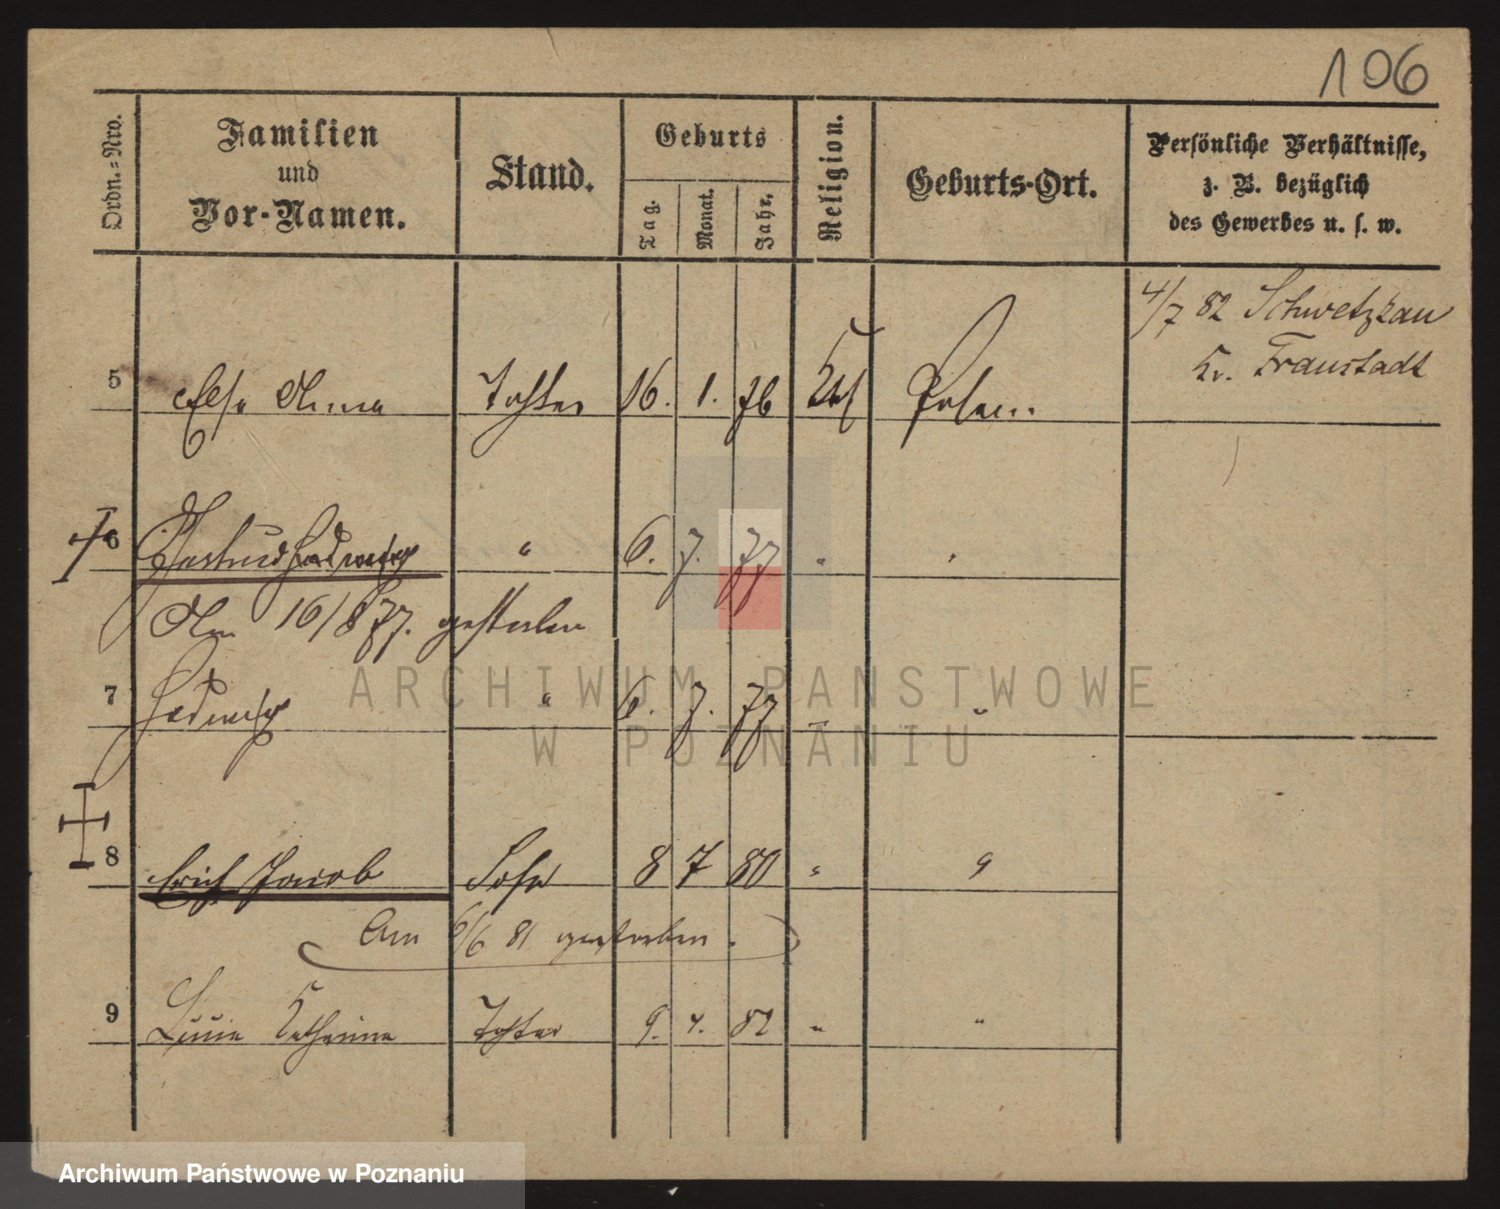 106
Ordn.=Nro.
Familien
und
Vor-Namen.
Stand.
Geburts
Tag.
Monat.
Jahr.
Religion.
Geburts-Ort.
Persönliche Verhältnisse,
z. B. bezüglich
des Gewerbes u. s. w.
4/7 82 Schwetzkau
Kr. Fraustadt
5 Else Anna Tochter 16. 1. 76 Posen.
6 Gertrud Hedwig " 6. 7. 77 " "
Am 16/8 77. gestorben
7 Hedwig " 6. 7. 77 " "
8 Erich Jacob Sohn 8 7 80 " "
Am 6/6 81 gestorben.
9 Katharina Tochter 9. 4. 82 " "
ARCHIWUM PAŃSTWOWE
W POZNANIU
Archiwum Państwowe w Poznaniu